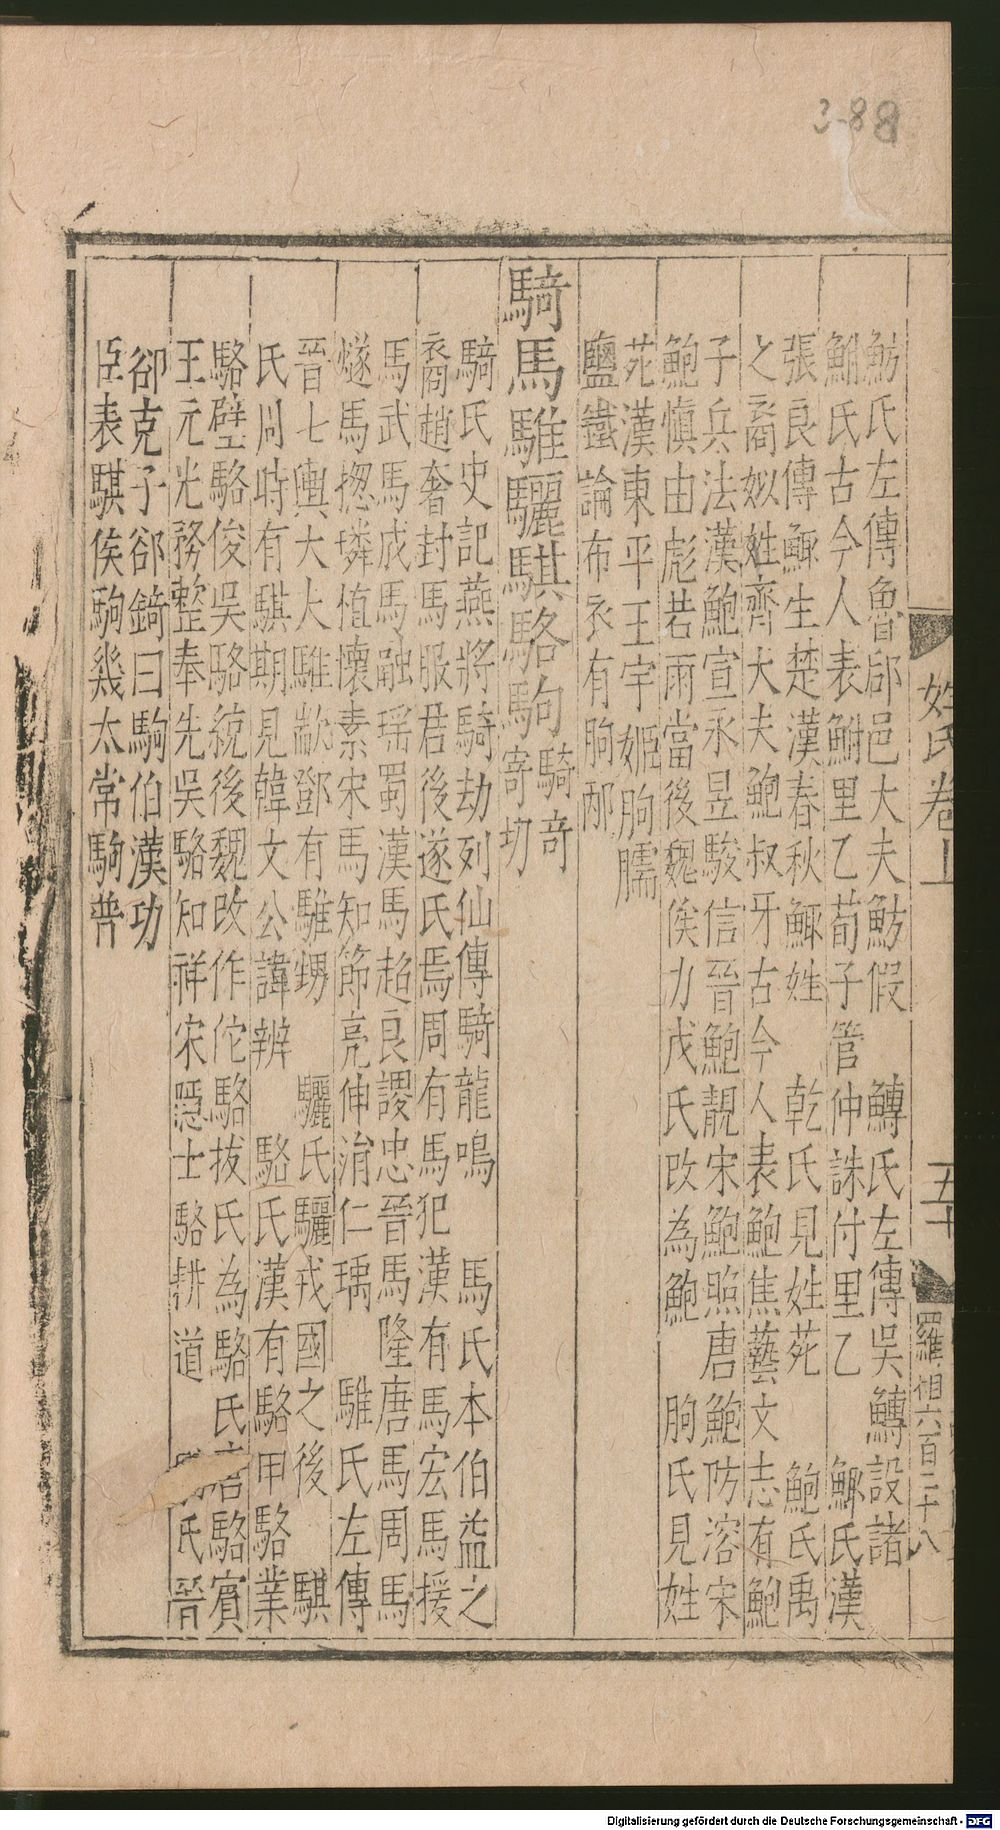 3-88
姓氏卷上
五十
羅 祖六百二十八
魴氏左傳魯郈邑大夫魴假 鱄氏左傳吳鱄設諸
鮒氏古今人表鮒里乙荀子管仲誅付里乙 鯫氏漢
張良傳鯫生楚漢春秋鯫姓 乾氏見姓苑 鮑氏禹
之裔姒姓齊大夫鮑叔牙古今人表鮑焦藝文志有鮑
子兵法漢鮑宣永昱駿信晉鮑靚宋鮑照唐鮑防溶宋
鮑慎由彪若雨當後魏俟力戊氏改為鮑 朐氏見姓
苑漢東平王宇姬朐臑
鹽鐵論布衣有朐邴
騎馬騅驪騏駱駒騎奇寄切
騎氏史記燕將騎劫列仙傳騎龍鳴 馬氏本伯益之
裔趙奢封馬服君後遂氏焉周有馬犯漢有馬宏馬援
馬武馬成馬融瑶蜀漢馬超良謖忠晉馬隆唐馬周馬
燧馬揔璘植懷素宋馬知節亮伸涓仁瑀 騅氏左傳
晉七輿大夫騅歂鄧有騅甥 驪氏驪戎國之後 騏
氏周時有騏期見韓文公諱辨 駱氏漢有駱甲駱業
駱璧駱俊吳駱統後魏改作佗駱拔氏為駱氏唐駱賓
王元光務整奉先吳駱知祥宋隠士駱耕道 氏晉
郤克子郤錡曰駒伯漢功
臣表騏侯駒幾太常駒普
Digitalisierung gefördert durch die Deutsche Forschungsgemeinschaft - DFG